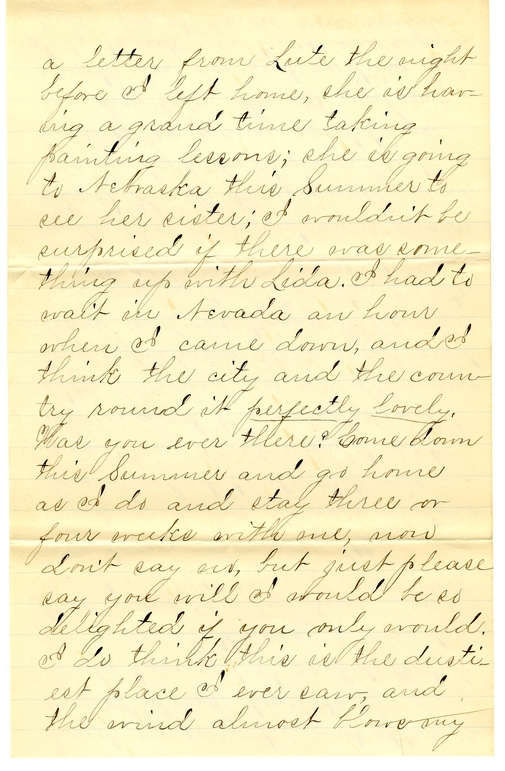 a letter from Lute the night
before I left home, she is hav-
ing a grand time taking
painting lessons; she is going
to Nebraska this Summer to
see her sister; I wouldn't be
surprised if there was some-
thing up with Lida. I had to
wait in Nevada an hour
when I came down, and I
think the city and the coun-
try round it perfectly lovely.
Was you ever there? Come down
this Summer and go home
as I do and stay three or
four weeks with me, now
don't say no, but just please
say you will I would be so
delighted if you only would.
I do think this is the dusti-
est place I ever saw, and
the wind almost blows my